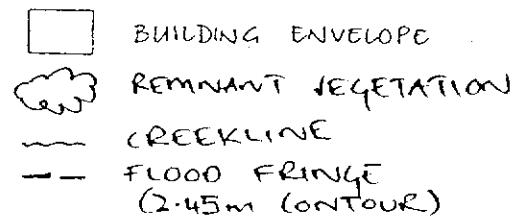 BUILDING ENVELOPE
REMNANT VEGETATION
CREEKLINE
FLOOD FRINGE
(2.45m CONTOUR)